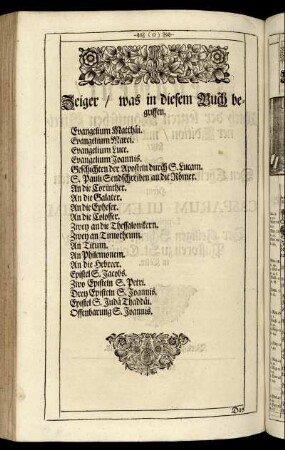 (0)
Zeiger / was in diesem Buch be-
griffen.
Evangelium Matthäi.
Evangelium Marci.
Evangelium Luce.
Evangelium Joannis.
Geschichten der Aposteln durch S. Lucam.
S. Pauli Sendschreiben an die Römer.
An die Corinther.
An die Galater.
An die Epheser.
An die Colosser.
Zwey an die Thessalonikern.
Zwey an Timotheum.
An Titum.
An Philemonem.
An die Hebreer.
Epistel S. Jacobs.
Zwo Episteln S. Petri.
Drey Episteln S. Joannis.
Epistel S. Judä Thaddäi.
Offenbarung S. Joannis.
Das